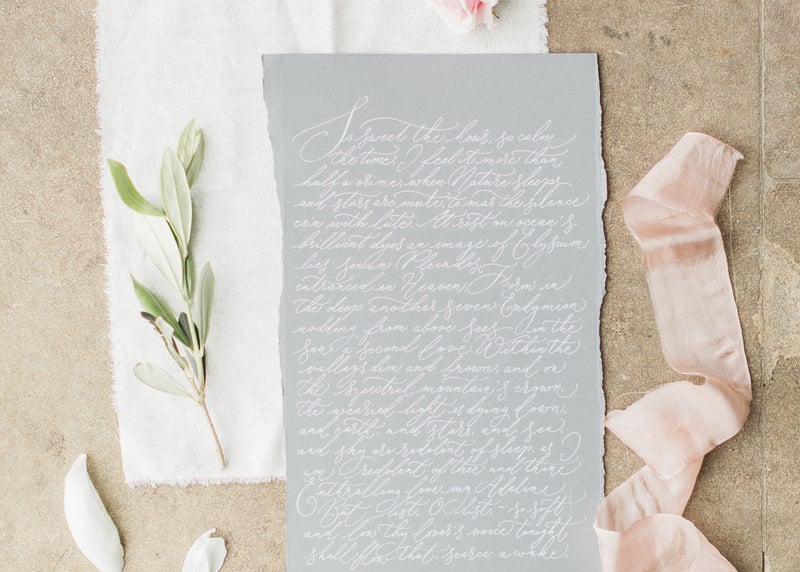 So sweet the hour, so calm
the time, I feel it more than
half a crime, when Nature sleeps
and stars are mute, to mar the silence
ev'n with lute. At rest on ocean's
brilliant dyes an image of Elysium
lies. Seven Pleiades
entranced in Heaven, Form in
the deep another seven Endymion
nodding from above sees in the
sea a second love. Within the
valleys dim and brown, and on
the spectral mountain's crown
the wearied light is dying down,
and earth, and stars, and sea
and sky are redolent of sleep, as I
am redolent of thee and thine
Enthralling love, my Adeline
But list, O list, - so soft
and low thy lover's voice tonight
shall flow that, scarce awake,